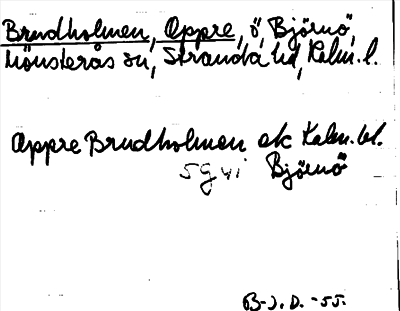 Brudholmen, Oppre, ö, Björnö,
Mönsterås sn, Stranda hd, Kalm. l.
Oppre Brudholmen ek Kalm. bl.
5 g vi Björnö
B-J. D. -55.